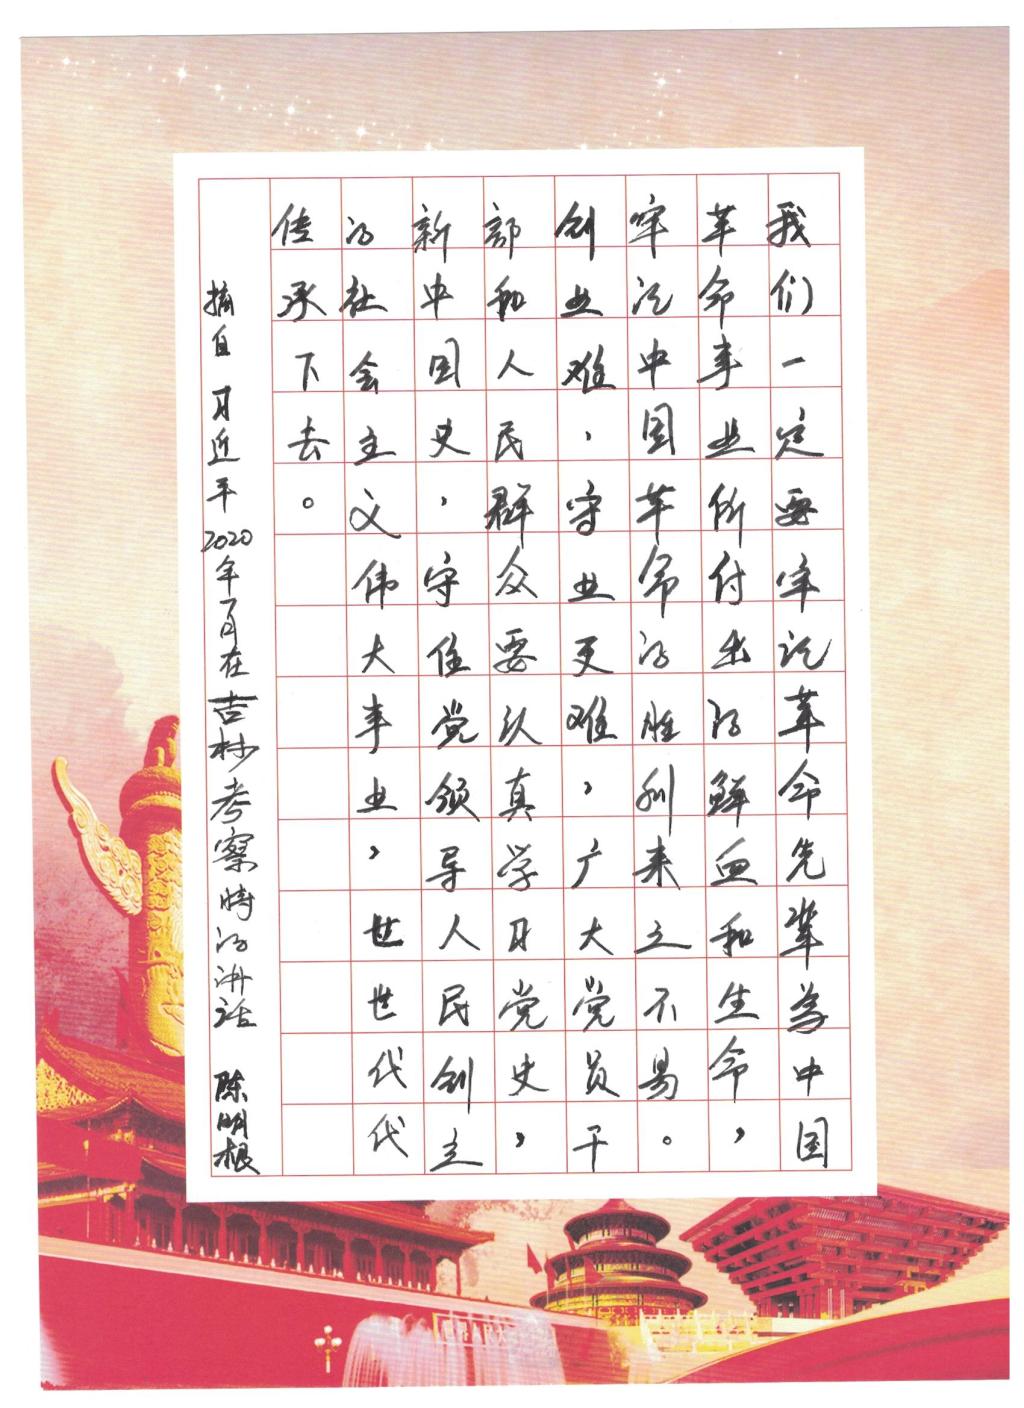 我们一定要牢记革命先辈为中国
革命事业所付出的鲜血和生命，
牢记中国革命的胜利来之不易。
创业难，守业更难，广大党员干
部和人民群众要认真学习党史，
新中国史，守住党领导人民创立
的社会主义伟大事业，世世代代
传承下去。
摘自 习近平2020年7月在吉林考察时的讲话 陈明根